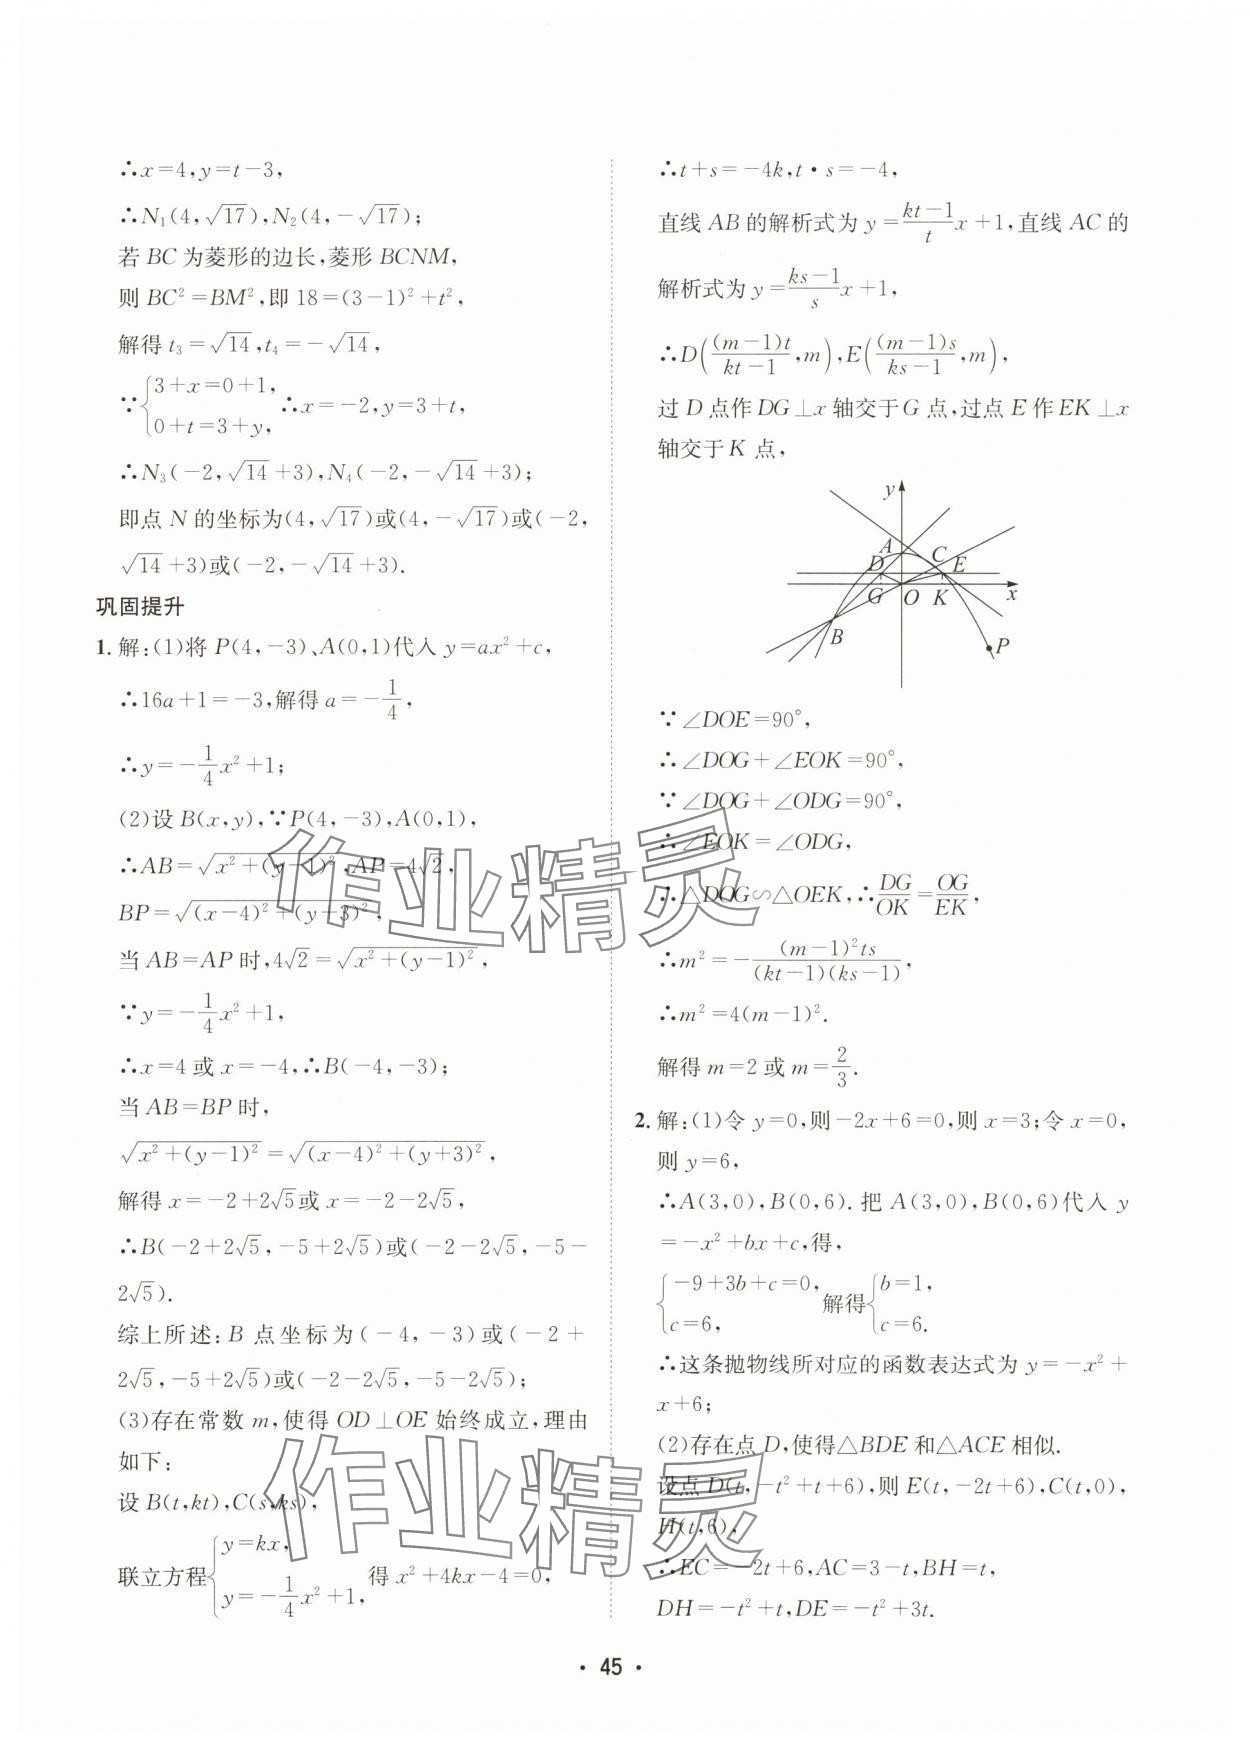 ∴x=4,y=t-3,
∴N₁(4,√17),N₂(4,-√17);
若 BC 为菱形的边长,菱形 BCNM,
则 BC²=BM²,即 18=(3-1)²+t²,
解得 t₃=√14,t₄=-√14,
∵{3+x=0+1, 0+t=3+y, ∴x=-2,y=3+t,
∴N₃(-2,√14+3),N₄(-2,-√14+3);
即点 N 的坐标为(4,√17)或(4,-√17)或(-2,
√14+3)或(-2,-√14+3).
巩固提升
1. 解:(1)将 P(4,-3)、A(0,1)代入 y=ax²+c,
∴16a+1=-3,解得 a=-1/4,
∴y=-1/4x²+1;
(2)设 B(x,y),∵P(4,-3),A(0,1),
∴AB=√(x²+(y-1)²),AP=4√2,
BP=√((x-4)²+(y+3)²),
当 AB=AP 时,4√2=√(x²+(y-1)²),
∵y=-1/4x²+1,
∴x=4 或 x=-4,∴B(-4,-3);
当 AB=BP 时,
√(x²+(y-1)²)=√((x-4)²+(y+3)²),
解得 x=-2+2√5或 x=-2-2√5,
∴B(-2+2√5,-5+2√5)或(-2-2√5,-5-
2√5).
综上所述:B 点坐标为(-4,-3)或(-2+
2√5,-5+2√5)或(-2-2√5,-5-2√5);
(3)存在常数 m,使得 OD⊥OE 始终成立,理由
如下:
设 B(t,kt),C(s,ks),
联立方程{y=kx, y=-1/4x²+1, 得 x²+4kx-4=0,
∴t+s=-4k,t·s=-4,
直线 AB 的解析式为 y=(kt-1)/t x+1,直线 AC 的
解析式为 y=(ks-1)/s x+1,
∴D((m-1)t/(kt-1),m),E((m-1)s/(ks-1),m),
过 D 点作 DG⊥x 轴交于 G 点,过点 E 作 EK⊥x
轴交于 K 点,
y
A
C
D
E
G
O
K
x
B
P
∵∠DOE=90°,
∴∠DOG+∠EOK=90°,
∵∠DOG+∠ODG=90°,
∴∠EOK=∠ODG,
∴△DOG∽△OEK,∴DG/OK=OG/EK,
∴m²=-(m-1)²ts/((kt-1)(ks-1)),
∴m²=4(m-1)².
解得 m=2 或 m=2/3.
2. 解:(1)令 y=0,则-2x+6=0,则 x=3;令 x=0,
则 y=6,
∴A(3,0),B(0,6).把 A(3,0),B(0,6)代入 y
=-x²+bx+c,得,
{-9+3b+c=0, c=6, 解得{b=1, c=6.
∴这条抛物线所对应的函数表达式为 y=-x²+
x+6;
(2)存在点 D,使得△BDE 和△ACE 相似.
设点 D(t,-t²+t+6),则 E(t,-2t+6),C(t,0),
H(t,6),
∴EC=-2t+6,AC=3-t,BH=t,
DH=-t²+t,DE=-t²+3t.
· 45 ·
作业精灵
作业精灵